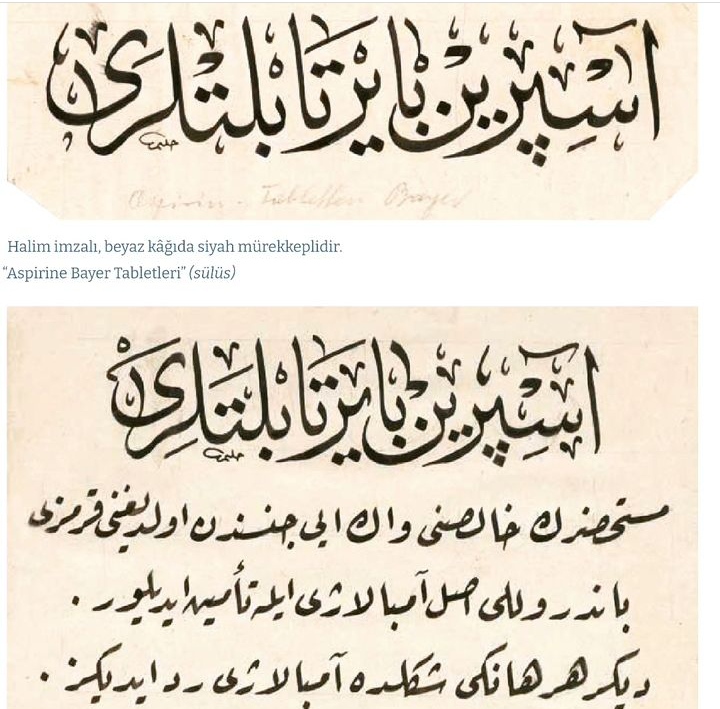 آسپيرين بايَر تابلتلرى
حليم
Aspirin - Tabletten Bayer
Halim imzalı, beyaz kâğıda siyah mürekkeplidir.
“Aspirine Bayer Tabletleri” (sülüs)
آسپيرين بايَر تابلتلرى
حليم
مستحضرك خالصنى واك ايى جنسندن اولديغنى قرمزى
باندروللى اصل آمبالاژى ايله تأمين ايديليور .
ديكر هر هانكى شكلده آمبالاژى رد ايديكز .